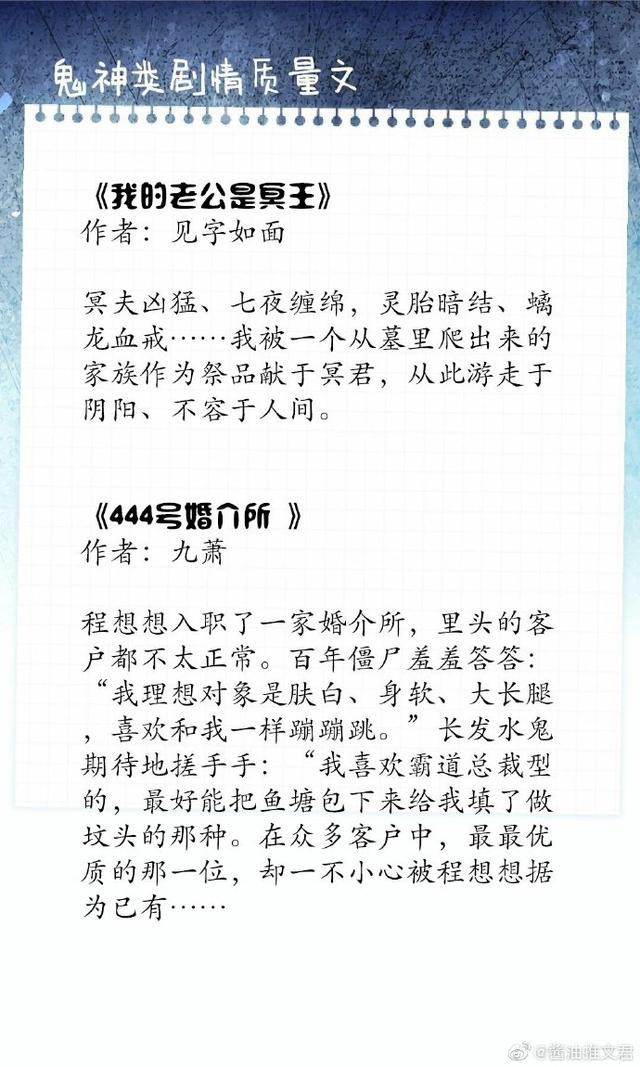 鬼神类剧情质量文
《我的老公是冥王》
作者：见字如面
冥夫凶猛、七夜缠绵，灵胎暗结、螭
龙血戒……我被一个从墓里爬出来的
家族作为祭品献于冥君，从此游走于
阴阳、不容于人间。
《444号婚介所 》
作者：九萧
程想想入职了一家婚介所，里头的客
户都不太正常。百年僵尸羞羞答答：
“我理想对象是肤白、身软、大长腿
，喜欢和我一样蹦蹦跳。”长发水鬼
期待地搓手手：“我喜欢霸道总裁型
的，最好能把鱼塘包下来给我填了做
坟头的那种。在众多客户中，最最优
质的那一位，却一不小心被程想想据
为已有……
@酱油推文君